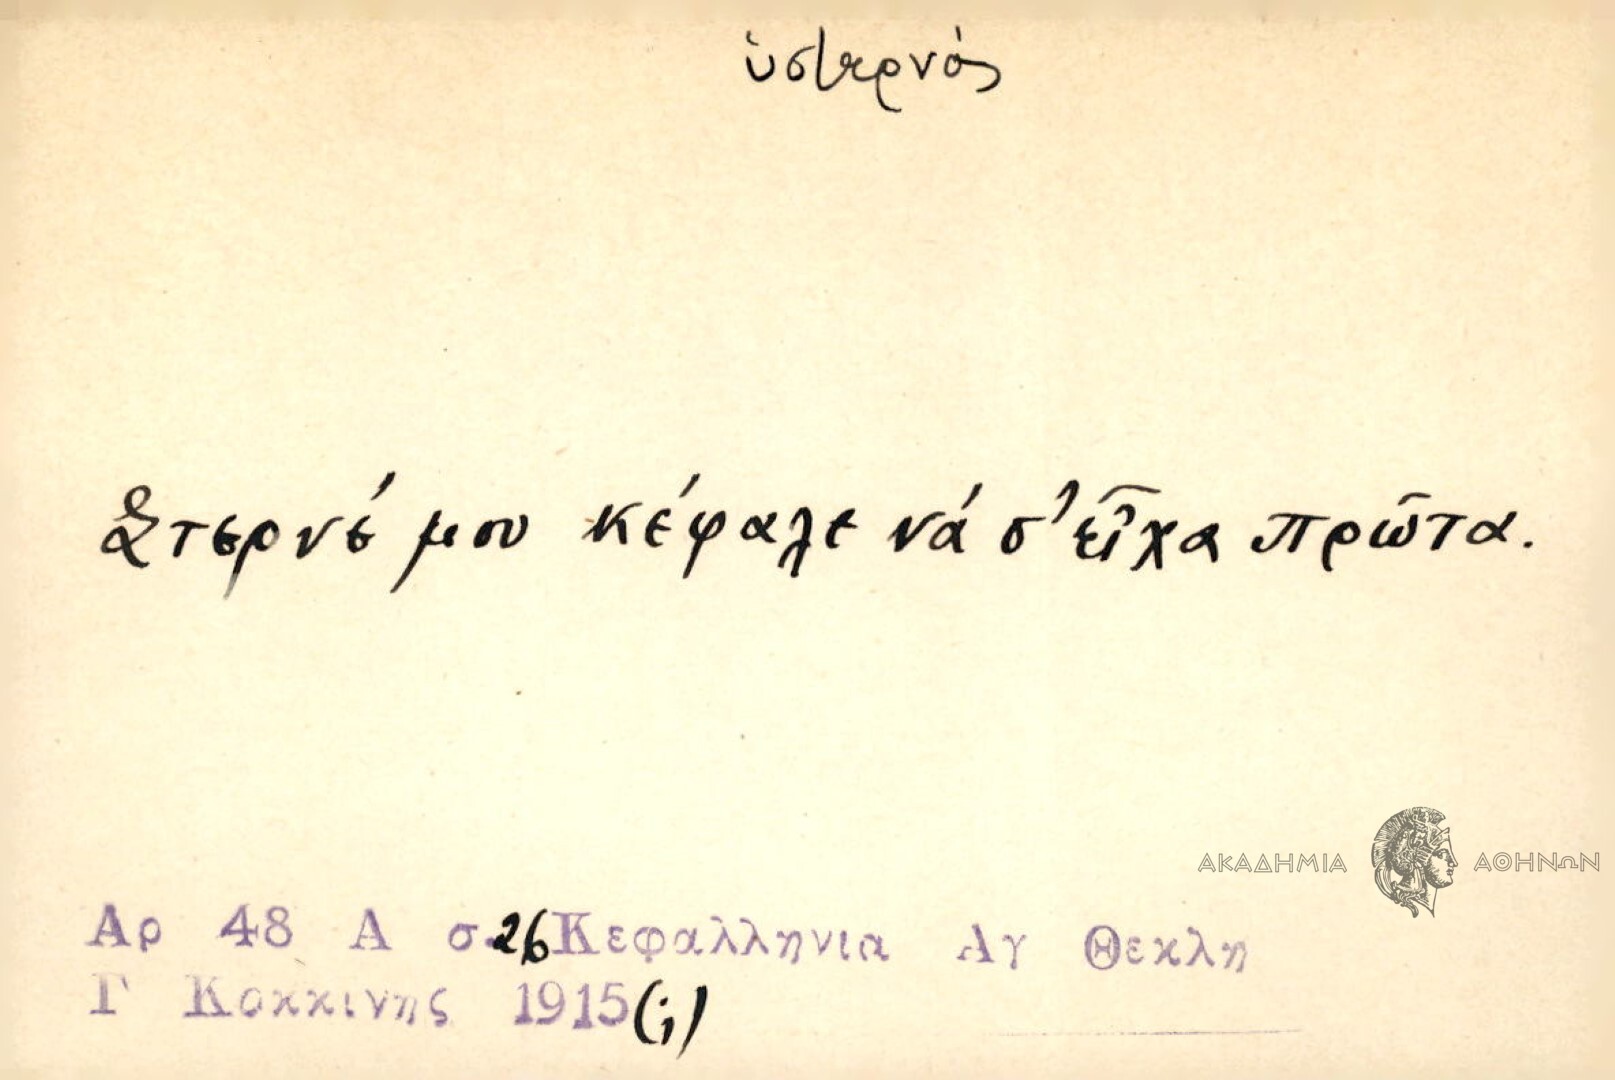 ὑστερνός
Στερνέ μου κέφαλε νά σ' εἶχα πρῶτα.
ΑΚΑΔΗΜΙΑ ΑΘΗΝΩΝ
Αρ 48 Α σ. 26 Κεφαλληνια Αγ Θεκλη
Γ Κοκκινης 1915 (;)